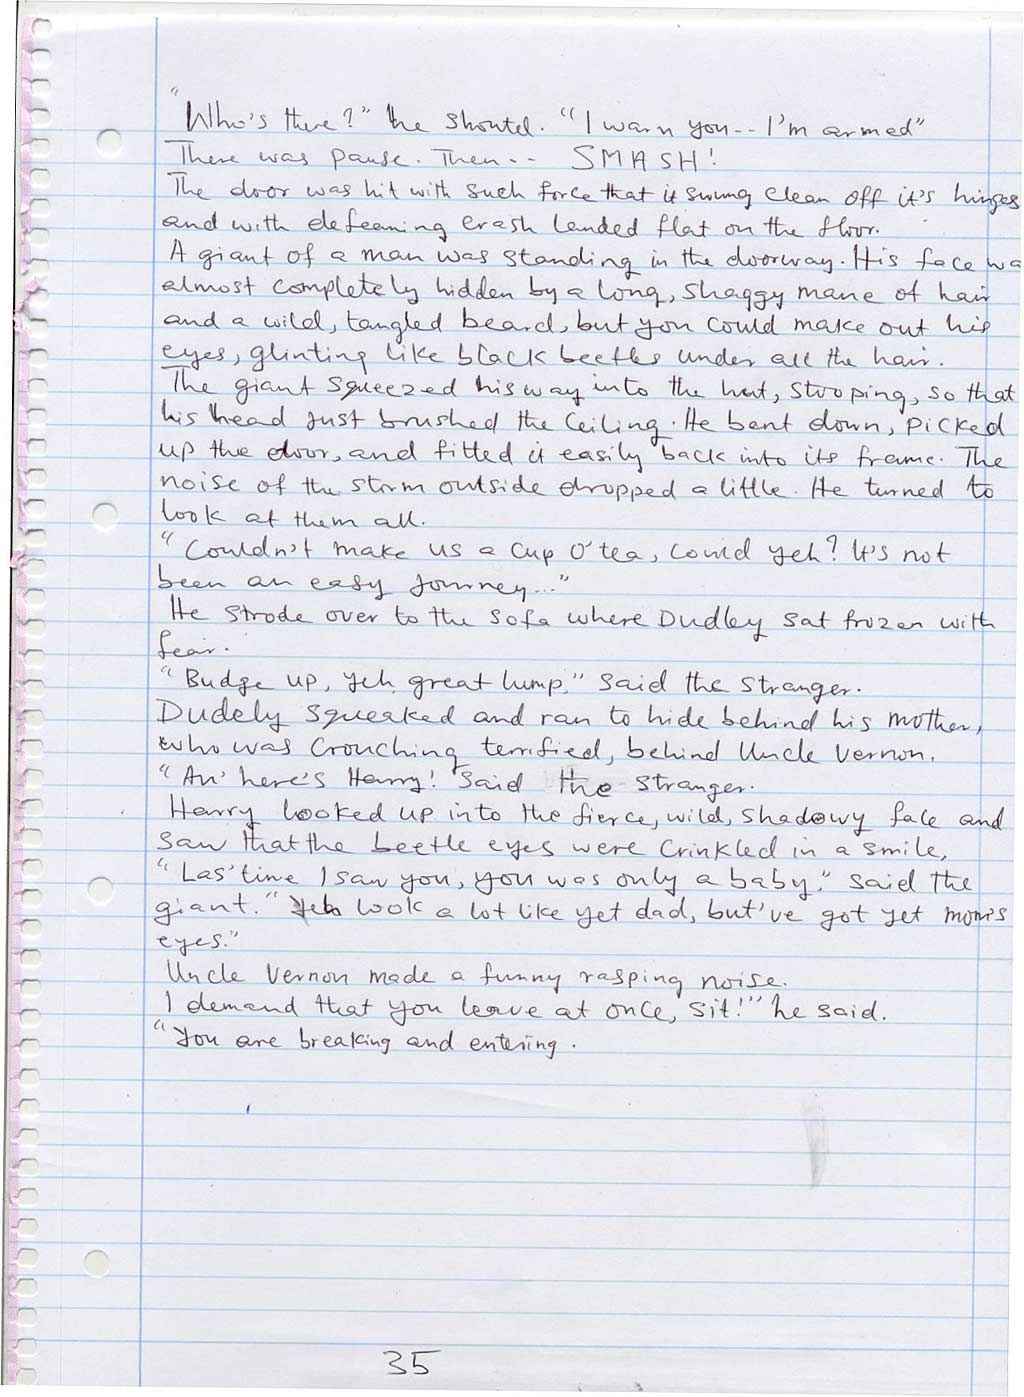 "Who's there?" he shouted. "I warn you-- I'm armed"
There was pause. Then-- SMASH!
The door was hit with such force that it swung clean off it's hinges
and with defeaning crash landed flat on the floor.
A giant of a man was standing in the doorway. His face wa
almost completely hidden by a long, shaggy mane of hair
and a wild, tangled beard, but you could make out his
eyes, glinting like black beetles under all the hair.
The giant squeezed his way into the hut, stooping, so that
his head just brushed the ceiling. He bent down, picked
up the door, and fitted it easily back into its frame. The
noise of the storm outside dropped a little. He turned to
look at them all.
"Couldn't make us a cup o'tea, could yeh? It's not
been an easy journey..."
He strode over to the sofa where Dudley sat frozen with
fear.
"Budge up, yeh great lump," said the stranger.
Dudely squeaked and ran to hide behind his mother,
who was crouching terrified, behind Uncle Vernon.
"An' here's Harry! said the stranger.
Harry looked up into the fierce, wild, shadowy face and
saw that the beetle eyes were crinkled in a smile,
"Las' time I saw you, you was only a baby," said the
giant." Yeh look a lot like yet dad, but've got yet mom's
eyes."
Uncle Vernon made a funny rasping noise.
I demand that you leave at once, sit!" he said.
"You are breaking and entering.
35